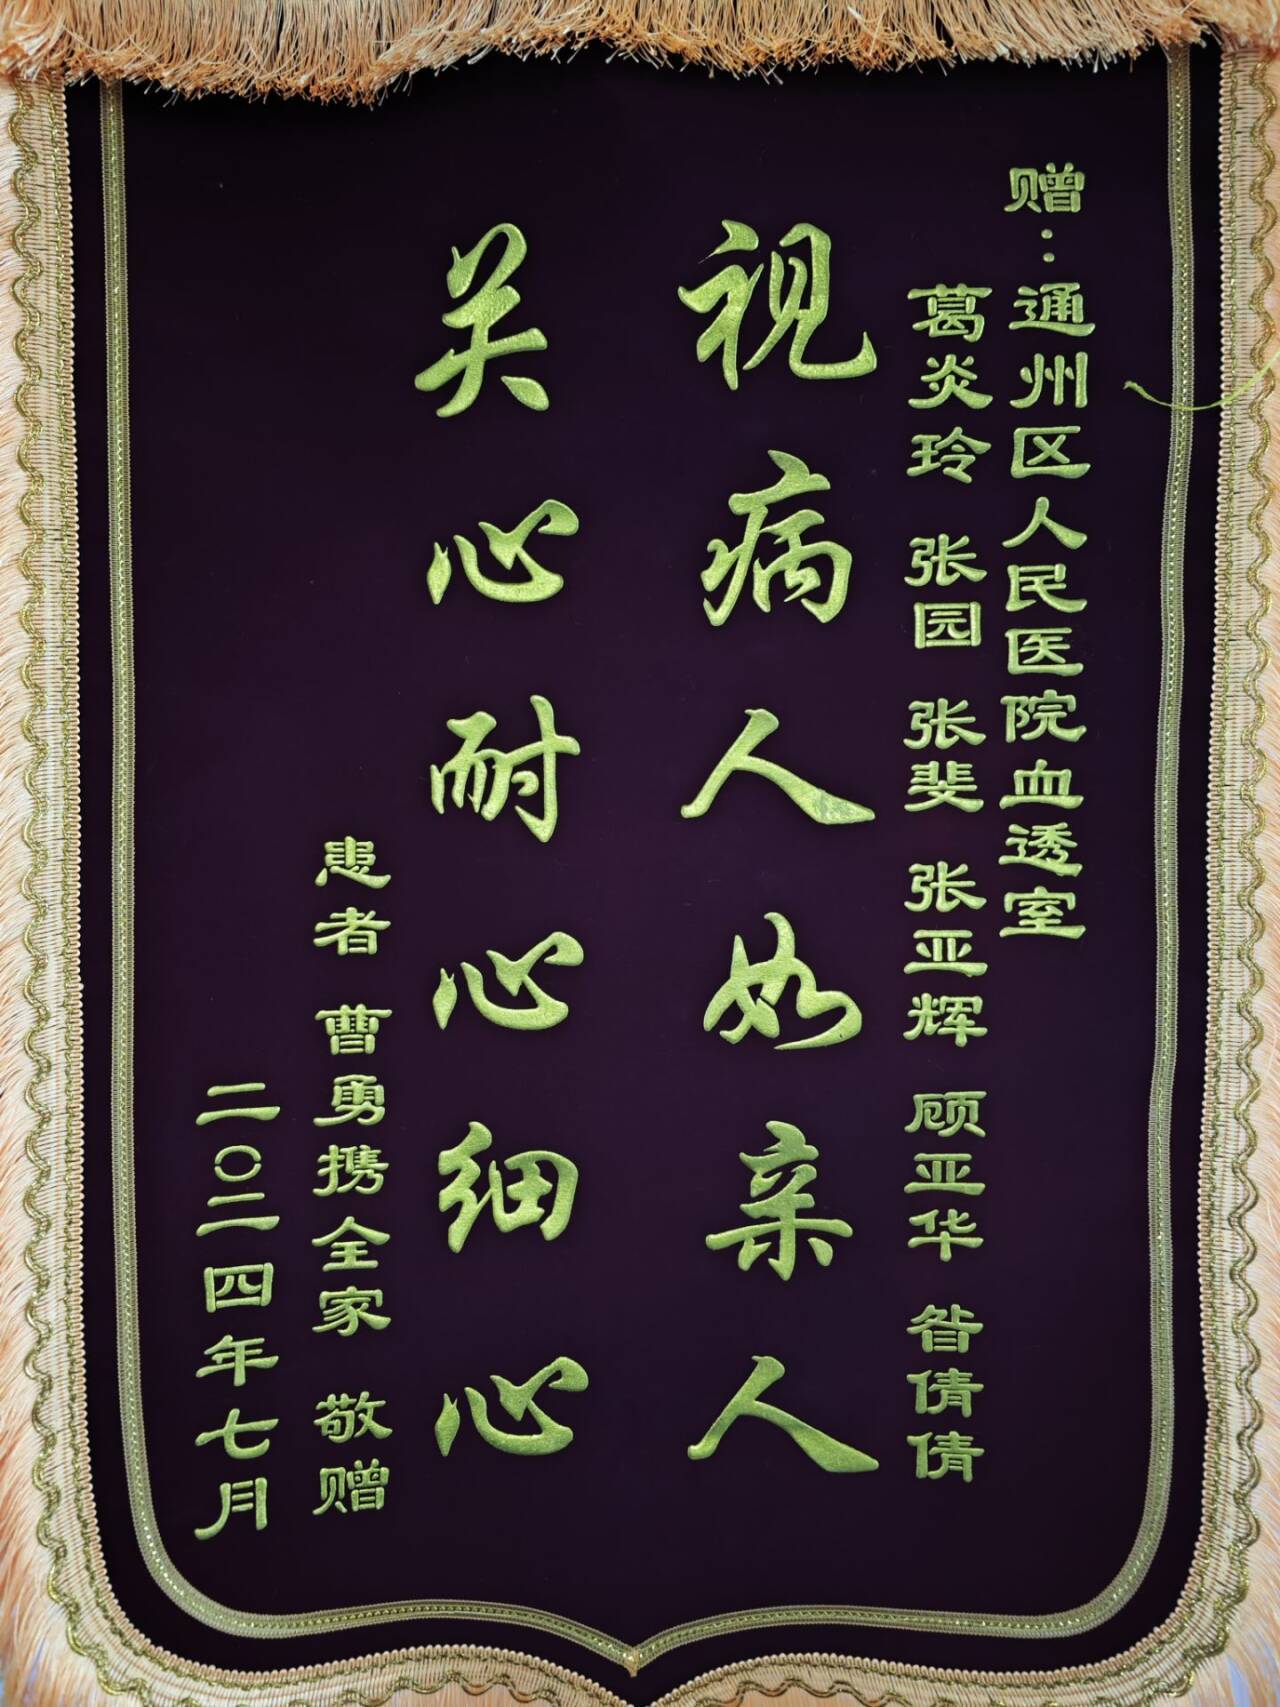 赠：通州区人民医院血透室
葛炎玲 张园 张斐 张亚辉 顾亚华 昝倩倩
视病人如亲人
关心耐心细心
患者 曹勇携全家 敬赠
二〇二四年七月